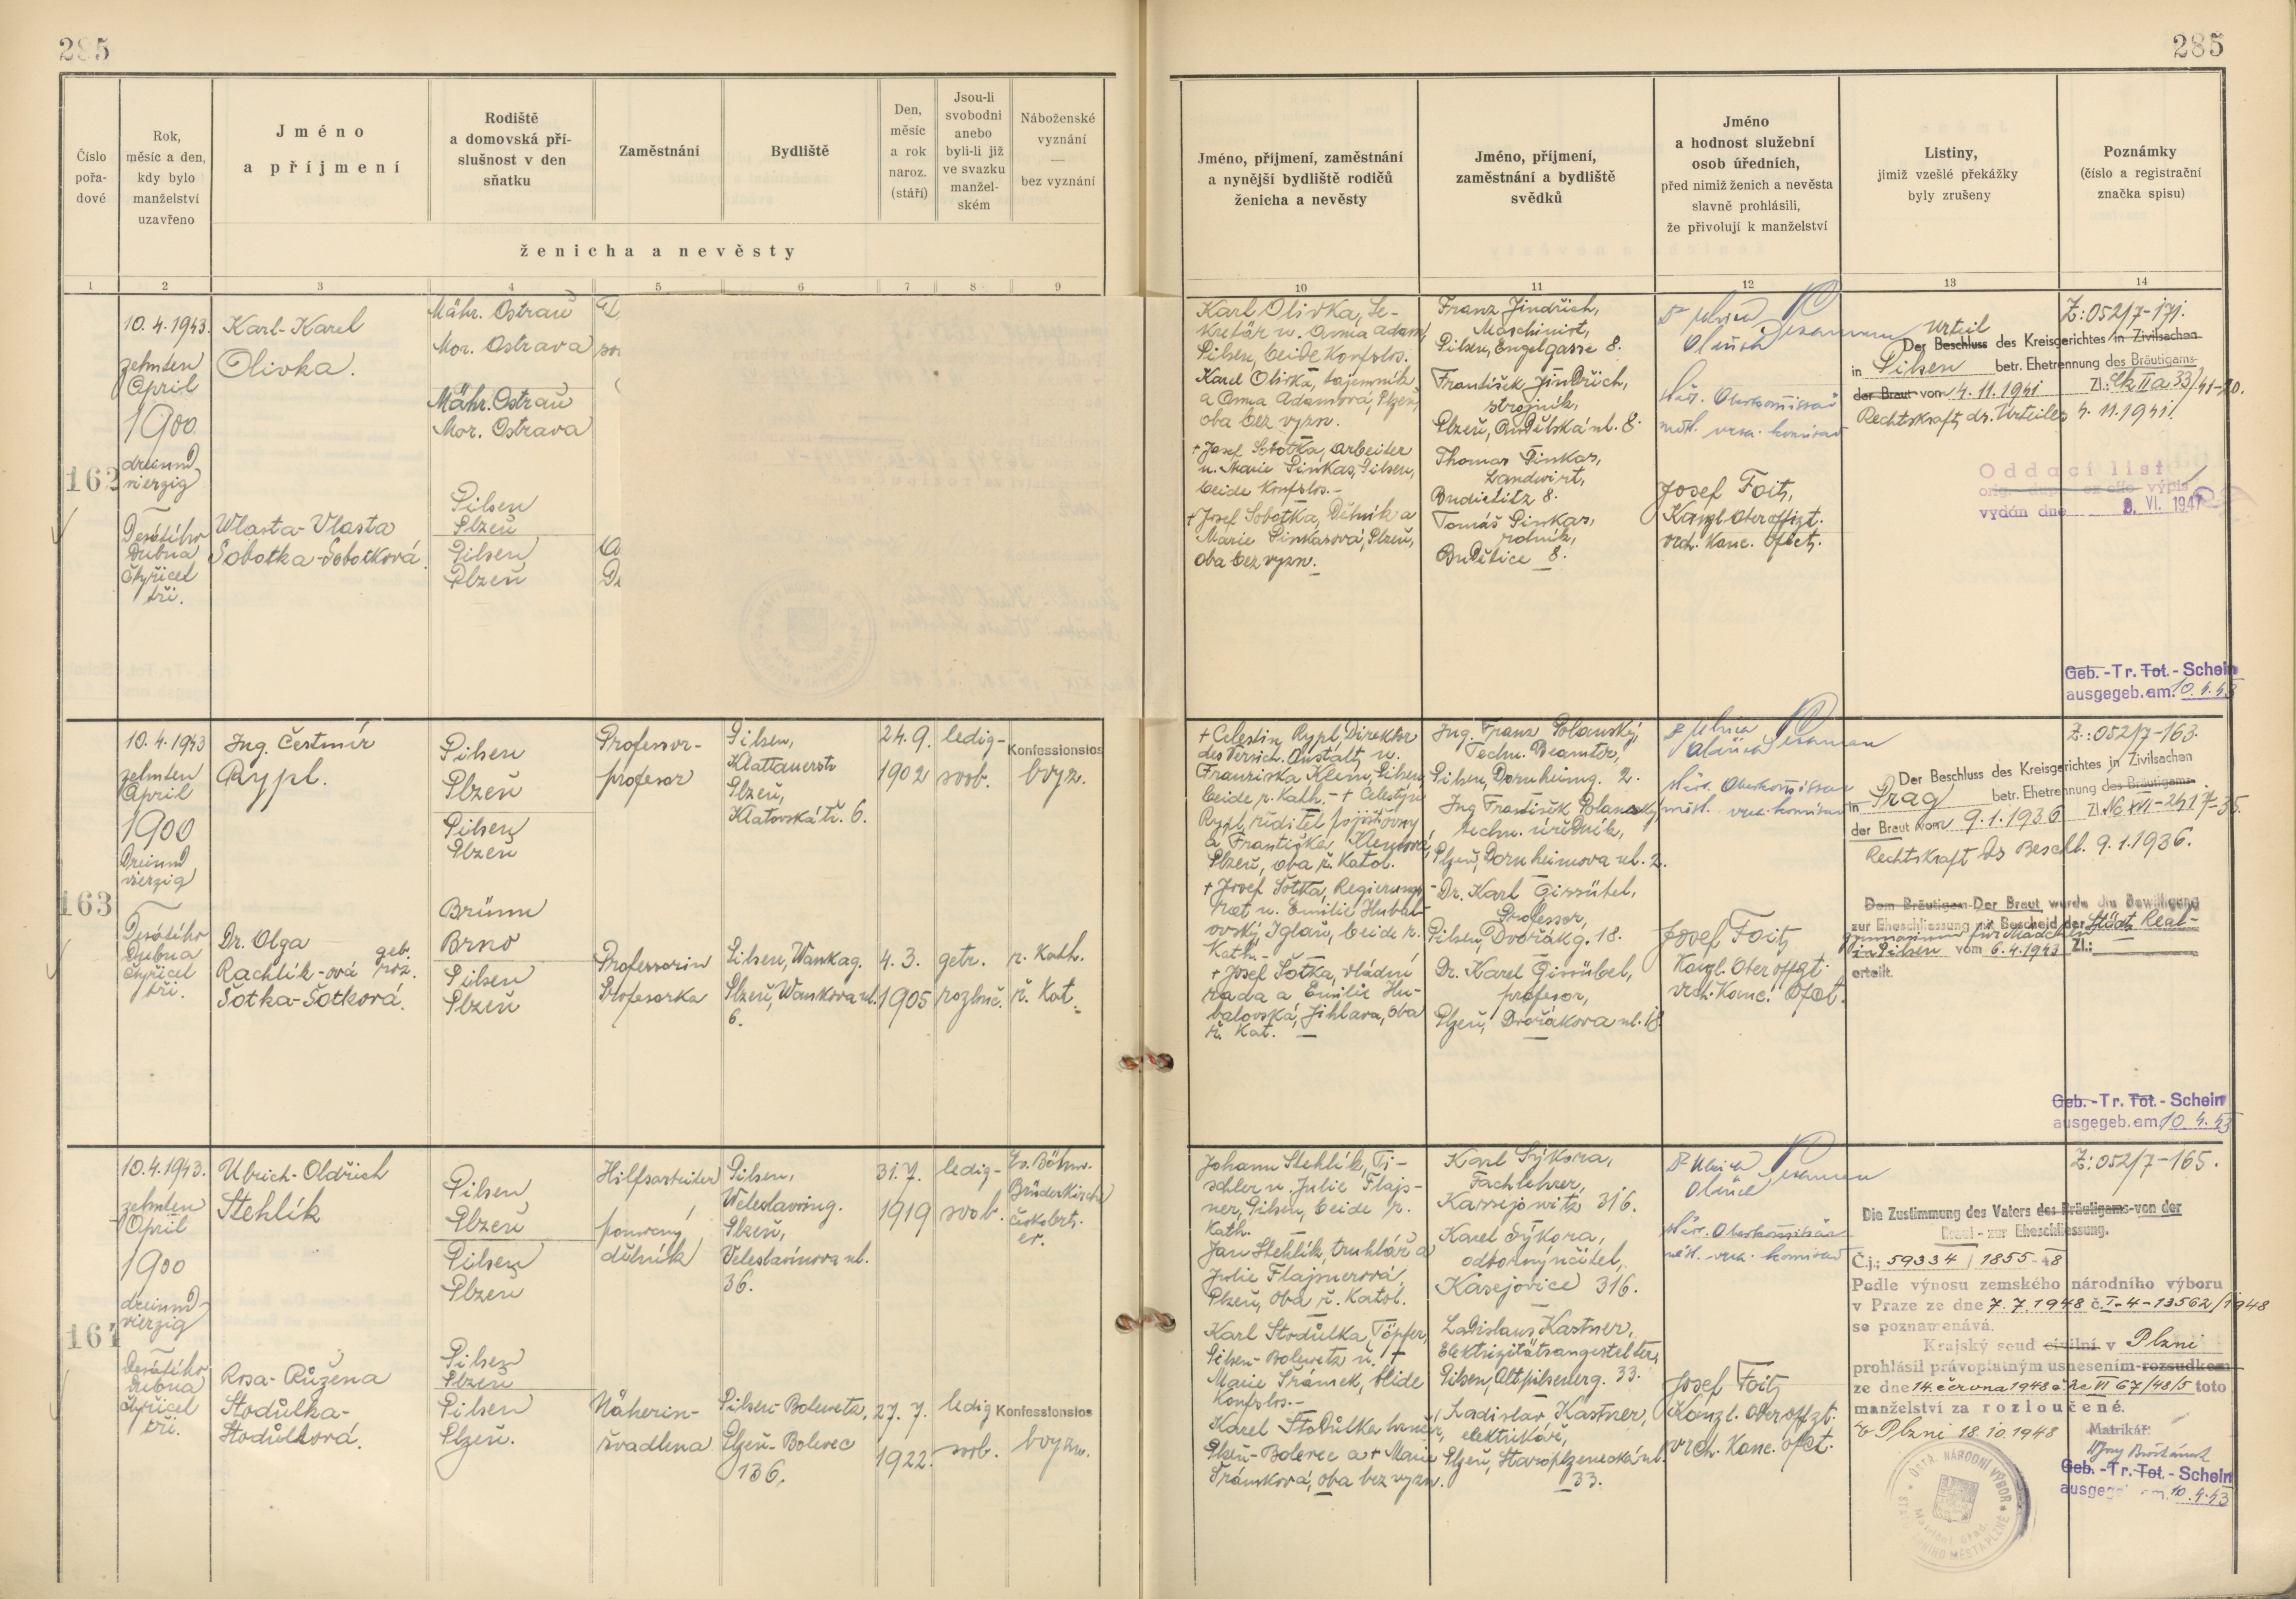 285
285
Číslo
pořa-
dové
Rok,
měsíc a den,
kdy bylo
manželství
uzavřeno
Jméno
a příjmení
Rodiště
a domovská pří-
slušnost v den
sňatku
Zaměstnání
Bydliště
Den,
měsíc
a rok
naroz.
(stáří)
Jsou-li
svobodni
anebo
byli-li již
ve svazku
manžel-
ském
Náboženské
vyznání
—
bez vyznání
ženicha a nevěsty
Jméno, příjmení, zaměstnání
a nynější bydliště rodičů
ženicha a nevěsty
Jméno, příjmení,
zaměstnání a bydliště
svědků
Jméno
a hodnost služební
osob úředních,
před nimiž ženich a nevěsta
slavně prohlásili,
že přivolují k manželství
Listiny,
jimiž vzešlé překážky
byly zrušeny
Poznámky
(číslo a registrační
značka spisu)
1 2 3 4 5 6 7 8 9 10 11 12 13 14
162
10.4.1943.
zehnten
April
1900
dreiund
vierzig
Desátého
Dubna
čtyřicet
tři.
Karl-Karel
Olivka.
Wlasta-Vlasta
Sobotka-Sobotková.
Mähr. Ostrau
Mor. Ostrava
Mähr. Ostrau
Mor. Ostrava
Pilsen
Plzeň
Pilsen
Plzeň
Karl Olivka, Se-
kretär u. Anna Adam,
Pilsen, beide Konfslos.
Karel Olivka, tajemník
a Anna Adamová, Plzeň,
oba bez vyzn.
+ Josef Sobotka, Arbeiter
u. Marie Pinkas, Pilsen,
beide Konfslos.-
+ Josef Sobotka, Dělník a
Marie Pinkasová, Plzeň,
oba bez vyzn.
Franz Jindřich,
Maschinist,
Pilsen, Engelgasse 8.
František Jindřich,
strojník,
Plzeň, Andělská ul. 8.
Thomas Pinkas,
Landwirt,
Budietitz 8.
Tomáš Pinkas,
rolník,
Budětice 8.
Oldřich
Oberkommissar
Josef Foitz,
Kanzl. Oberoffizt.
vrch. Kanc. Ofict.
Urteil
Der Beschluss des Kreisgerichtes in Zivilsachen
in Pilsen betr. Ehetrennung des Bräutigams-
der Braut von 4.11.1941 Zl.: Ck II a 33/41-20.
Rechtskraft ds. Urteiles 4.11.1941.
Oddací list
výpis
vydán dne 8. VI. 1947
Z: 052/7-171.
Geb.-Tr. Tot.-Schein
ausgegeb. am: 10.4.43
163
10.4.1943
zehnten
April
1900
Dreiund
vierzig
Desátého
Dubna
čtyřicet
tři.
Ing. Čestmír
Rypl.
Dr. Olga
Rachlík-ová geb.
roz.
Šotka-Šotková.
Pilsen
Plzeň
Pilsen
Plzeň
Brünn
Brno
Pilsen
Plzeň
Professor-
profesor
Professorin
Profesorka
Pilsen,
Klattauerstr
Plzeň,
Klatovská tř. 6.
Pilsen, Wankag.
Plzeň, Wankova ul.
6.
24.9.
1902
4.3.
1905
ledig-
svob.
getr.
rozluč.
Konfessionslos
bvyz.
r. Kath.
ř. Kat.
+ Celestin Rypl, Direktor
des Versich. Anstalt u.
Franziska Klem, Pilsen,
beide r. Kath. - + Celestýn
Rypl, ředitel pojišťovny
a Františka Klemová,
Plzeň, oba ř. Katol.
+ Josef Šotka, Regierungs-
rat u. Emilie Hubal-
ovský, Iglau, beide r.
Kath.-
+ Josef Šotka, vládní
rada a Emilie Hu-
balovská, Jihlava, oba
ř. Kat.
Ing. Franz Polanský,
Techn. Beamter,
Pilsen, Dornheimg. 2.
Ing. František Polanský,
techn. úředník,
Plzeň, Dornheimova ul. 2.
Dr. Karl Gissübel,
Professor,
Pilsen, Dvořákg. 18.
Dr. Karel Gissübel,
profesor,
Plzeň, Dvořákova ul. 18.
Oldřich
Oberkommissar
Josef Foitz
Kanzl. Oberoffzt.
vrch. Kanc. Ofct.
Der Beschluss des Kreisgerichtes in Zivilsachen
in Prag betr. Ehetrennung des Bräutigams-
der Braut vom 9.1.1936 Zl. Nc XVI-241/7-35.
Rechtskraft ds Beschl. 9.1.1936.
Dem Bräutigam-Der Braut wurde die Bewilligung
zur Eheschliessung mit Bescheid der Städt. Real-
gymnasium für Mädchen
in Pilsen vom 6.4.1943 Zl.:
erteilt.
Z.: 052/7-163.
Geb.-Tr. Tot.-Schein
ausgegeb. am 10.4.43
164
10.4.1943.
zehnten
April
1900
dreiund-
vierzig
Desátého
Dubna
čtyřicet
tři.
Ulrich-Oldřich
Stehlík
Rosa-Růžena
Stodůlka-
Stodůlková.
Pilsen
Plzeň
Pilsen
Plzeň
Pilsen
Plzeň
Pilsen
Plzeň.
Hilfsarbeiter
pomocný
dělník
Näherin-
švadlena
Pilsen,
Weleslawing.
Plzeň,
Veleslavínova ul.
36.
Pilsen-Bolewetz,
Plzeň-Bolevec
136.
31.7.
1919
27.7.
1922.
ledig-
svob.
ledig
svob.
Ev. Böhm.
Brüderkirche
českobrt.
ev.
Konfessionslos
bvyzn.
Johann Stehlík, Ti-
schler u. Julie Flajs-
ner, Pilsen, beide r.
Kath.
Jan Stehlík, truhlář a
Julie Flajsnerová,
Plzeň, oba ř. Katol.
Karl Stodůlka, Töpfer,
Pilsen-Bolewetz u. +
Marie Šrámek, beide
Konfslos.-
Karel Stodůlka,
Plzeň-Bolevec a + Marie
Šrámková, oba bez vyzn.
Karl Sýkora,
Fachlehrer,
Kassejowitz 316.
Karel Sýkora,
odborný učitel,
Kasejovice 316.
Ladislaus Kastner,
Elektrizitätsangestellter,
Pilsen, Altpilsenerg. 33.
Ladislav Kastner,
elektrikář,
Plzeň, Staroplzenecká ul.
33.
Ulrich
Oldřich
Oberkommissar
Josef Foitz
Kanzl. Oberoffzt.
vrch. Kanc. Ofct.
Die Zustimmung des Vaters des Bräutigams-von der
Braut - zur Eheschliessung.
Č.j.: 59334/1855-48
Podle výnosu zemského národního výboru
v Praze ze dne 7.7.1948 č. I-4-13562/1948
se poznamenává.
Krajský soud civilní v Plzni
prohlásil právoplatným usnesením-rozsudkem
ze dne 14. června 1948 č. Nc VI 67/48/5 toto
manželství za rozloučené.
V Plzni 18.10.1948
Matrikář:
ÚSTŘ. NÁRODNÍ VÝBOR
Matriční úřad
MĚSTA PLZNĚ
Z: 052/7-165.
Geb.-Tr. Tot.-Schein
ausgegeb. am. 10.4.43